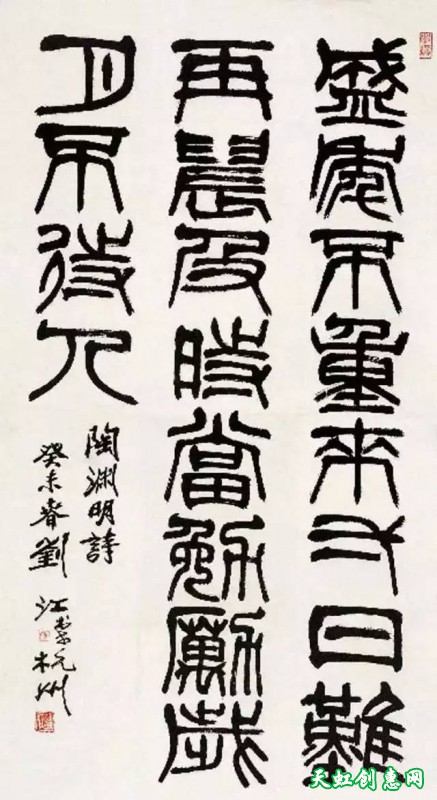 盛年不重來一日難
再晨及時當勉勵歲
月不待人
陶渊明詩
癸未春劉江書於杭州
天虹创惠网